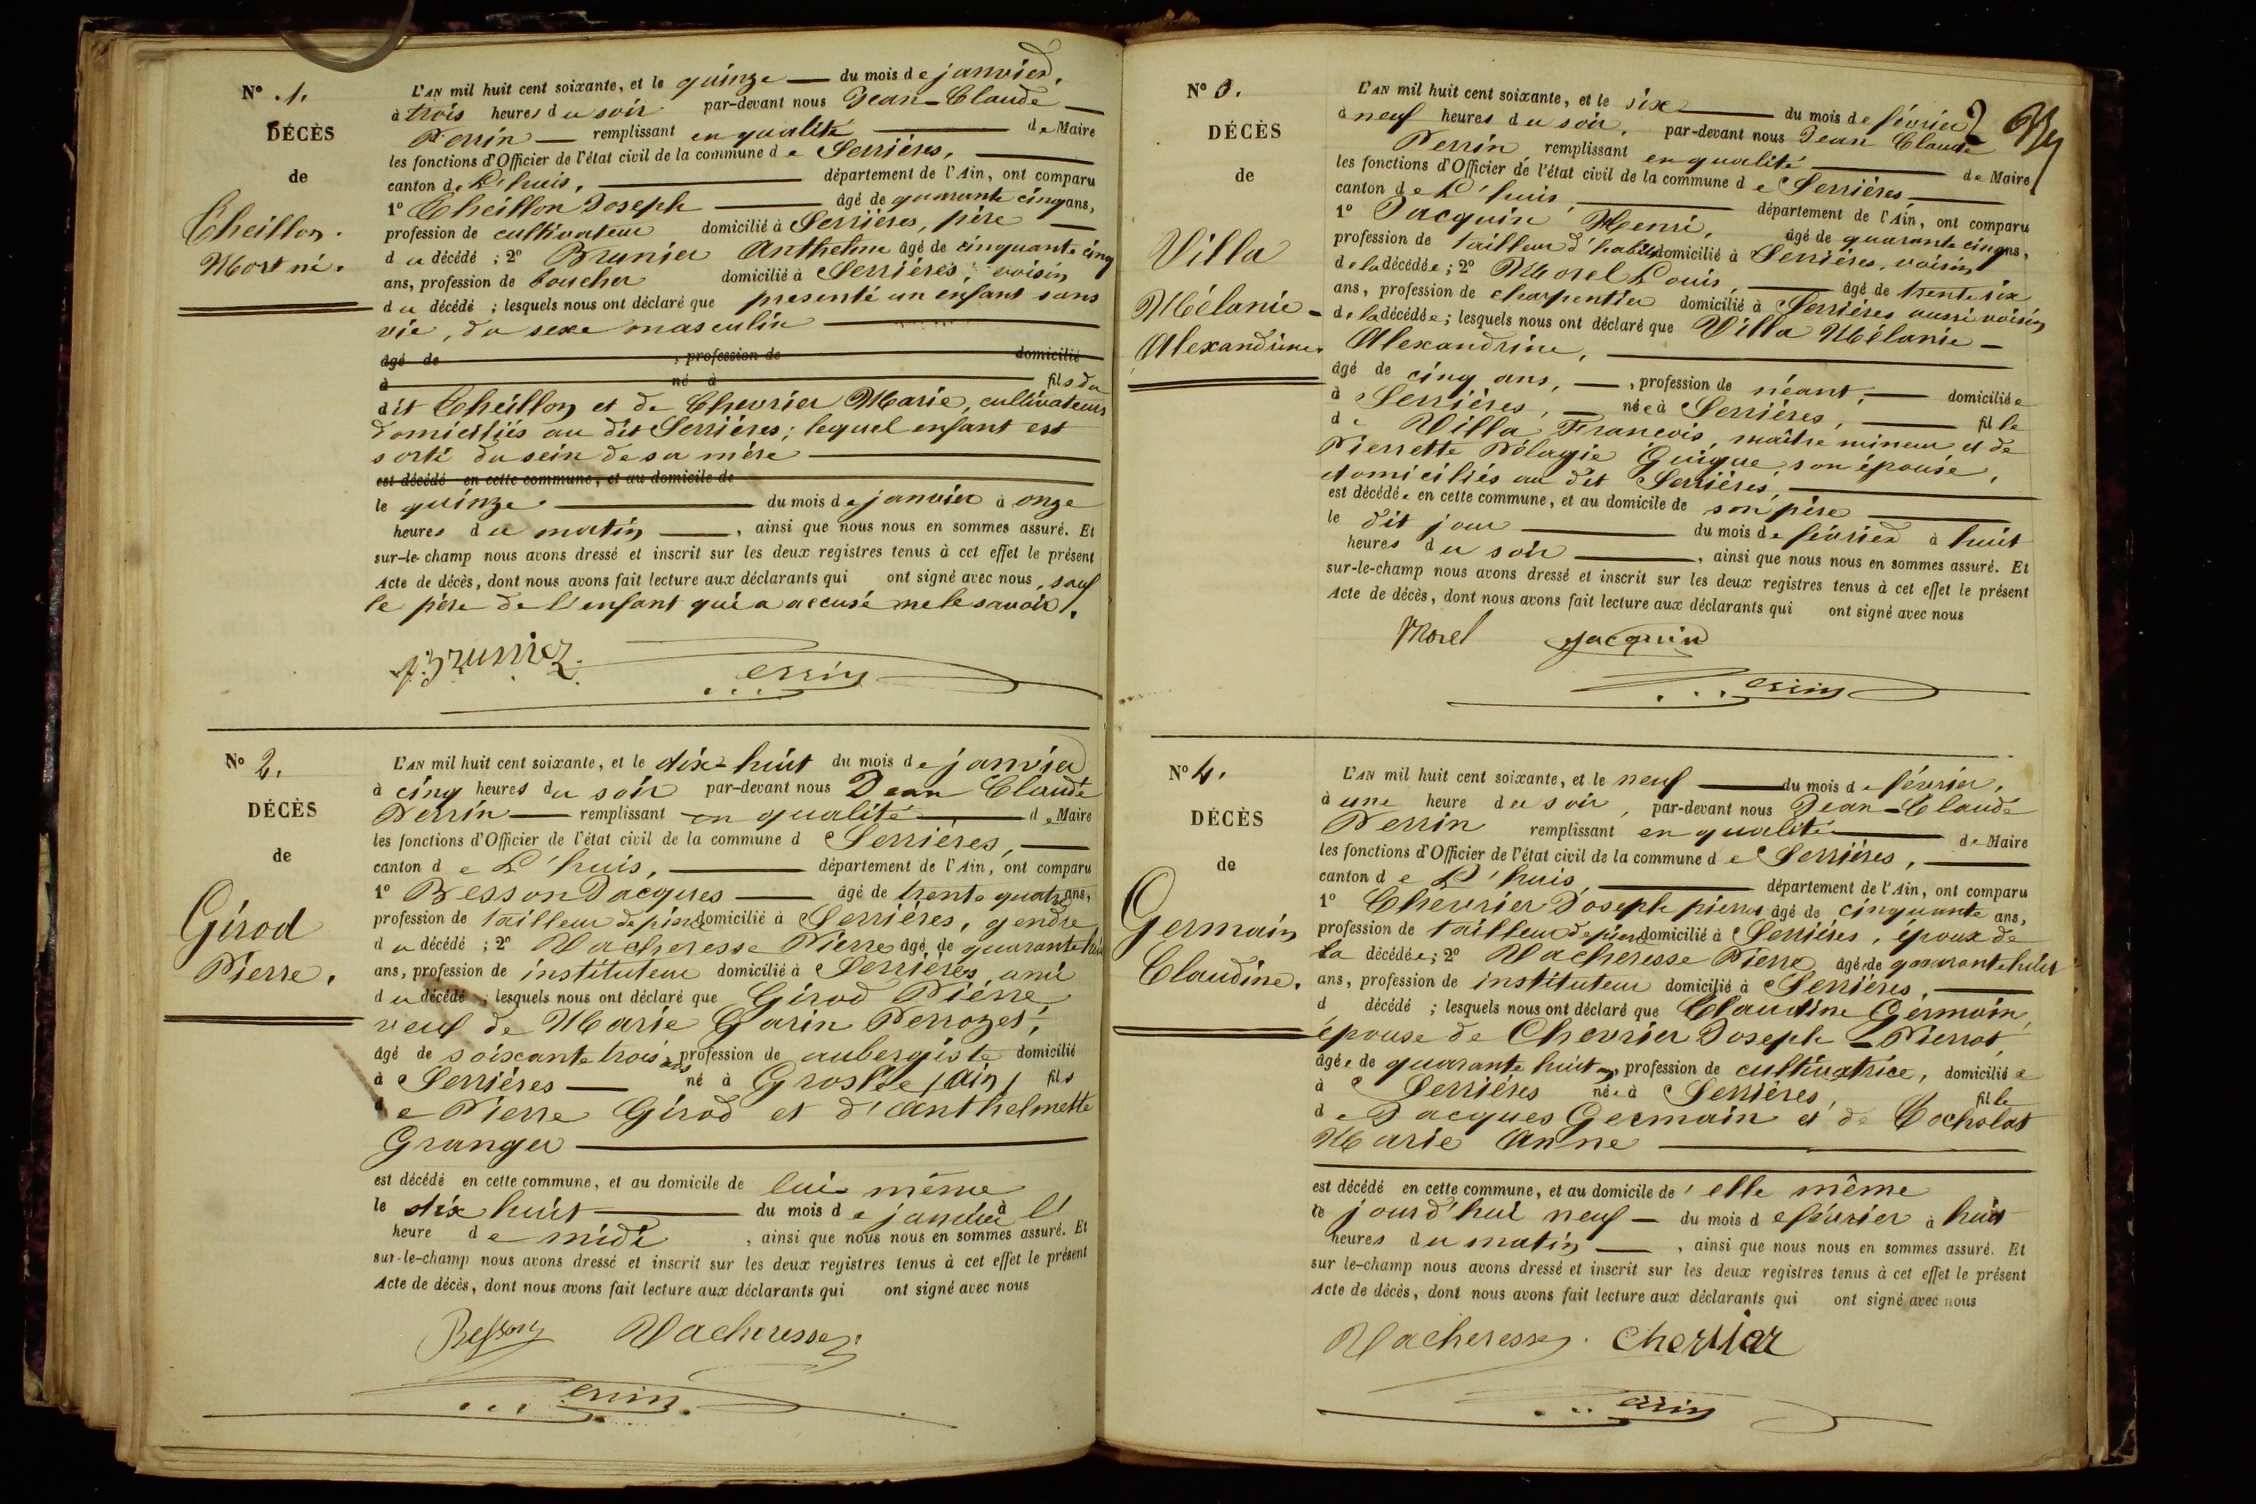 N° 1.
DÉCÈS
de
Cheillon.
Mort né.
L'AN mil huit cent soixante, et le quinze du mois de janvier,
à trois heures du soir par-devant nous Jean-Claude
Perrin remplissant en qualité de Maire
les fonctions d'Officier de l'état civil de la commune de Serrières,
canton de L'huis, département de l'Ain, ont comparu
1° Cheillon Joseph âgé de quarante cinq ans,
profession de cultivateur domicilié à Serrières, père
du décédé ; 2° Brunier Anthelme âgé de cinquante cinq
ans, profession de boucher domicilié à Serrières, voisin
du décédé ; lesquels nous ont déclaré que presenté un enfant sans
vie, du sexe masculin
âgé de , profession de domicilié
à né à fils du
dit Cheillon et de Chevrier Marie, cultivateurs
domiciliés au dit Serrières ; lequel enfant est
sorti du sein de sa mère
est décédé en cette commune, et au domicile de
le quinze du mois de janvier à onze
heures du matin , ainsi que nous nous en sommes assuré. Et
sur-le-champ nous avons dressé et inscrit sur les deux registres tenus à cet effet le présent
Acte de décès, dont nous avons fait lecture aux déclarants qui ont signé avec nous, sauf
le père de l'enfant qui a accusé ne le savoir.
Brunier Perrin
N° 2.
DÉCÈS
de
Girod
Pierre.
L'AN mil huit cent soixante, et le dix-huit du mois de janvier
à cinq heures du soir par-devant nous Jean Claude
Perrin remplissant en qualité de Maire
les fonctions d'Officier de l'état civil de la commune d Serrières,
canton de L'huis, département de l'Ain, ont comparu
1° Besson Jacques âgé de trente quatre ans,
profession de tailleur de pierre domicilié à Serrières, gendre
du décédé ; 2° Vacheresse Pierre âgé de quarante huit
ans, profession de instituteur domicilié à Serrières, ami
du décédé ; lesquels nous ont déclaré que Girod Pierre
veuf de Marie Garin Perrozet,
âgé de soixante trois ans profession de aubergiste domicilié
à Serrières né à Groslée (Ain) fils
de Pierre Girod et d'Anthelmette
Granger
est décédé en cette commune, et au domicile de lui-même
le dix huit du mois de janvier à l'
heure de midi , ainsi que nous nous en sommes assuré. Et
sur-le-champ nous avons dressé et inscrit sur les deux registres tenus à cet effet le présent
Acte de décès, dont nous avons fait lecture aux déclarants qui ont signé avec nous
Besson Vacheresse
Perrin
N° 3.
DÉCÈS
de
Villa
Mélanie-
Alexandrine.
L'AN mil huit cent soixante, et le six du mois de février
à neuf heures du soir, par-devant nous Jean Claude
Perrin remplissant en qualité de Maire
les fonctions d'Officier de l'état civil de la commune de Serrières
canton de L'huis département de l'Ain, ont comparu
1° Jacquin Henri, âgé de quarante cinq ans,
profession de tailleur d'habits domicilié à Serrières, voisin
de la décédée ; 2° Morel Louis, âgé de trente six
ans, profession de charpentier domicilié à Serrières aussi voisin
de la décédée ; lesquels nous ont déclaré que Villa Mélanie-
Alexandrine,
âgé de cinq ans, , profession de néant, domiciliée
à Serrières, née à Serrières, fille
de Villa François, maître mineur et de
Pierrette Pélagie Guigue, son épouse,
domiciliés au dit Serrières,
est décédée en cette commune, et au domicile de son père
le dit jour du mois de février à huit
heures du soir , ainsi que nous nous en sommes assuré. Et
sur-le-champ nous avons dressé et inscrit sur les deux registres tenus à cet effet le présent
Acte de décès, dont nous avons fait lecture aux déclarants qui ont signé avec nous
Morel Jacquin
Perrin
N° 4.
DÉCÈS
de
Germain
Claudine.
L'AN mil huit cent soixante, et le neuf du mois de février,
à une heure du soir, par-devant nous Jean-Claude
Perrin remplissant en qualité de Maire
les fonctions d'Officier de l'état civil de la commune de Serrières,
canton de L'huis, département de l'Ain, ont comparu
1° Chevrier Joseph pierrot âgé de cinquante ans,
profession de tailleur de pierre domicilié à Serrières, époux de
la décédée ; 2° Vacheresse Pierre âgé de quarante huit
ans, profession de instituteur domicilié à Serrières,
d décédé ; lesquels nous ont déclaré que Claudine Germain,
épouse de Chevrier Joseph-Pierrot,
âgée de quarante huit ans, profession de cultivatrice, domiciliée
à Serrières née à Serrières, fille
de Jacques Germain et de Cocholat
Marie Anne
est décédé en cette commune, et au domicile de elle même
le jourd'hui neuf du mois de février à huit
heures du matin , ainsi que nous nous en sommes assuré. Et
sur le-champ nous avons dressé et inscrit sur les deux registres tenus à cet effet le présent
Acte de décès, dont nous avons fait lecture aux déclarants qui ont signé avec nous
Vacheresse. Chevrier
Perrin